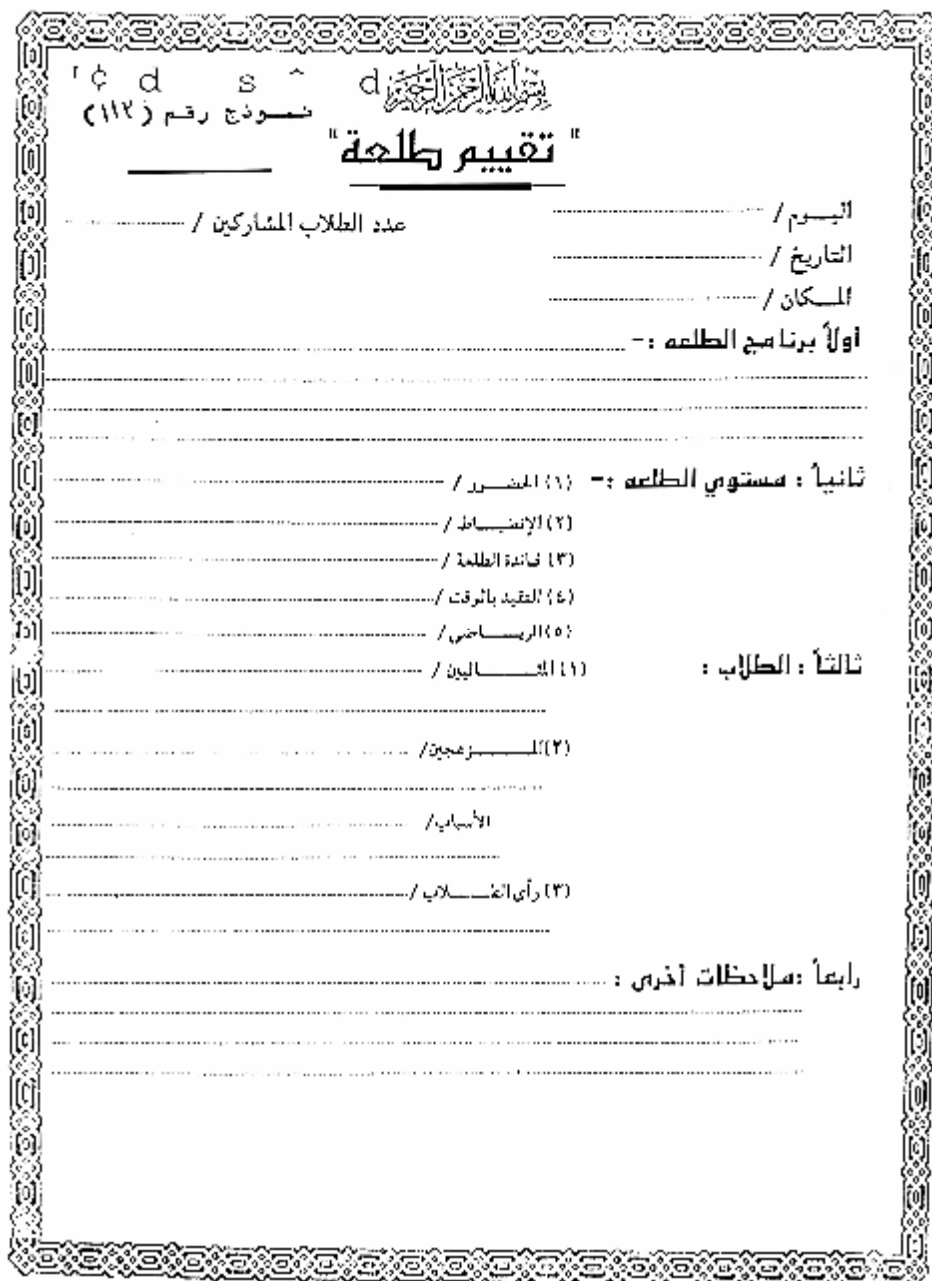 بسم الله الرحمن الرحيم
نمـــوذج رقم (١١٢)
" تقييم طلعة "
اليـــوم /
عدد الطلاب المشاركين /
التاريخ /
المـــكان /
أولاً برنامج الطلعه :-
ثانياً : مستوي الطلعه :- (١) الحضـــور /
(٢) الإنضبـــاط /
(٣) فائدة الطلعة /
(٤) التقيد بالوقت /
(٥) الريـــاضي /
ثالثاً : الطلاب : (١) المثـــاليين /
(٢) المـــزعجين /
الأسباب /
(٣) رأي الطـــلاب /
رابعاً : ملاحظات أخرى :